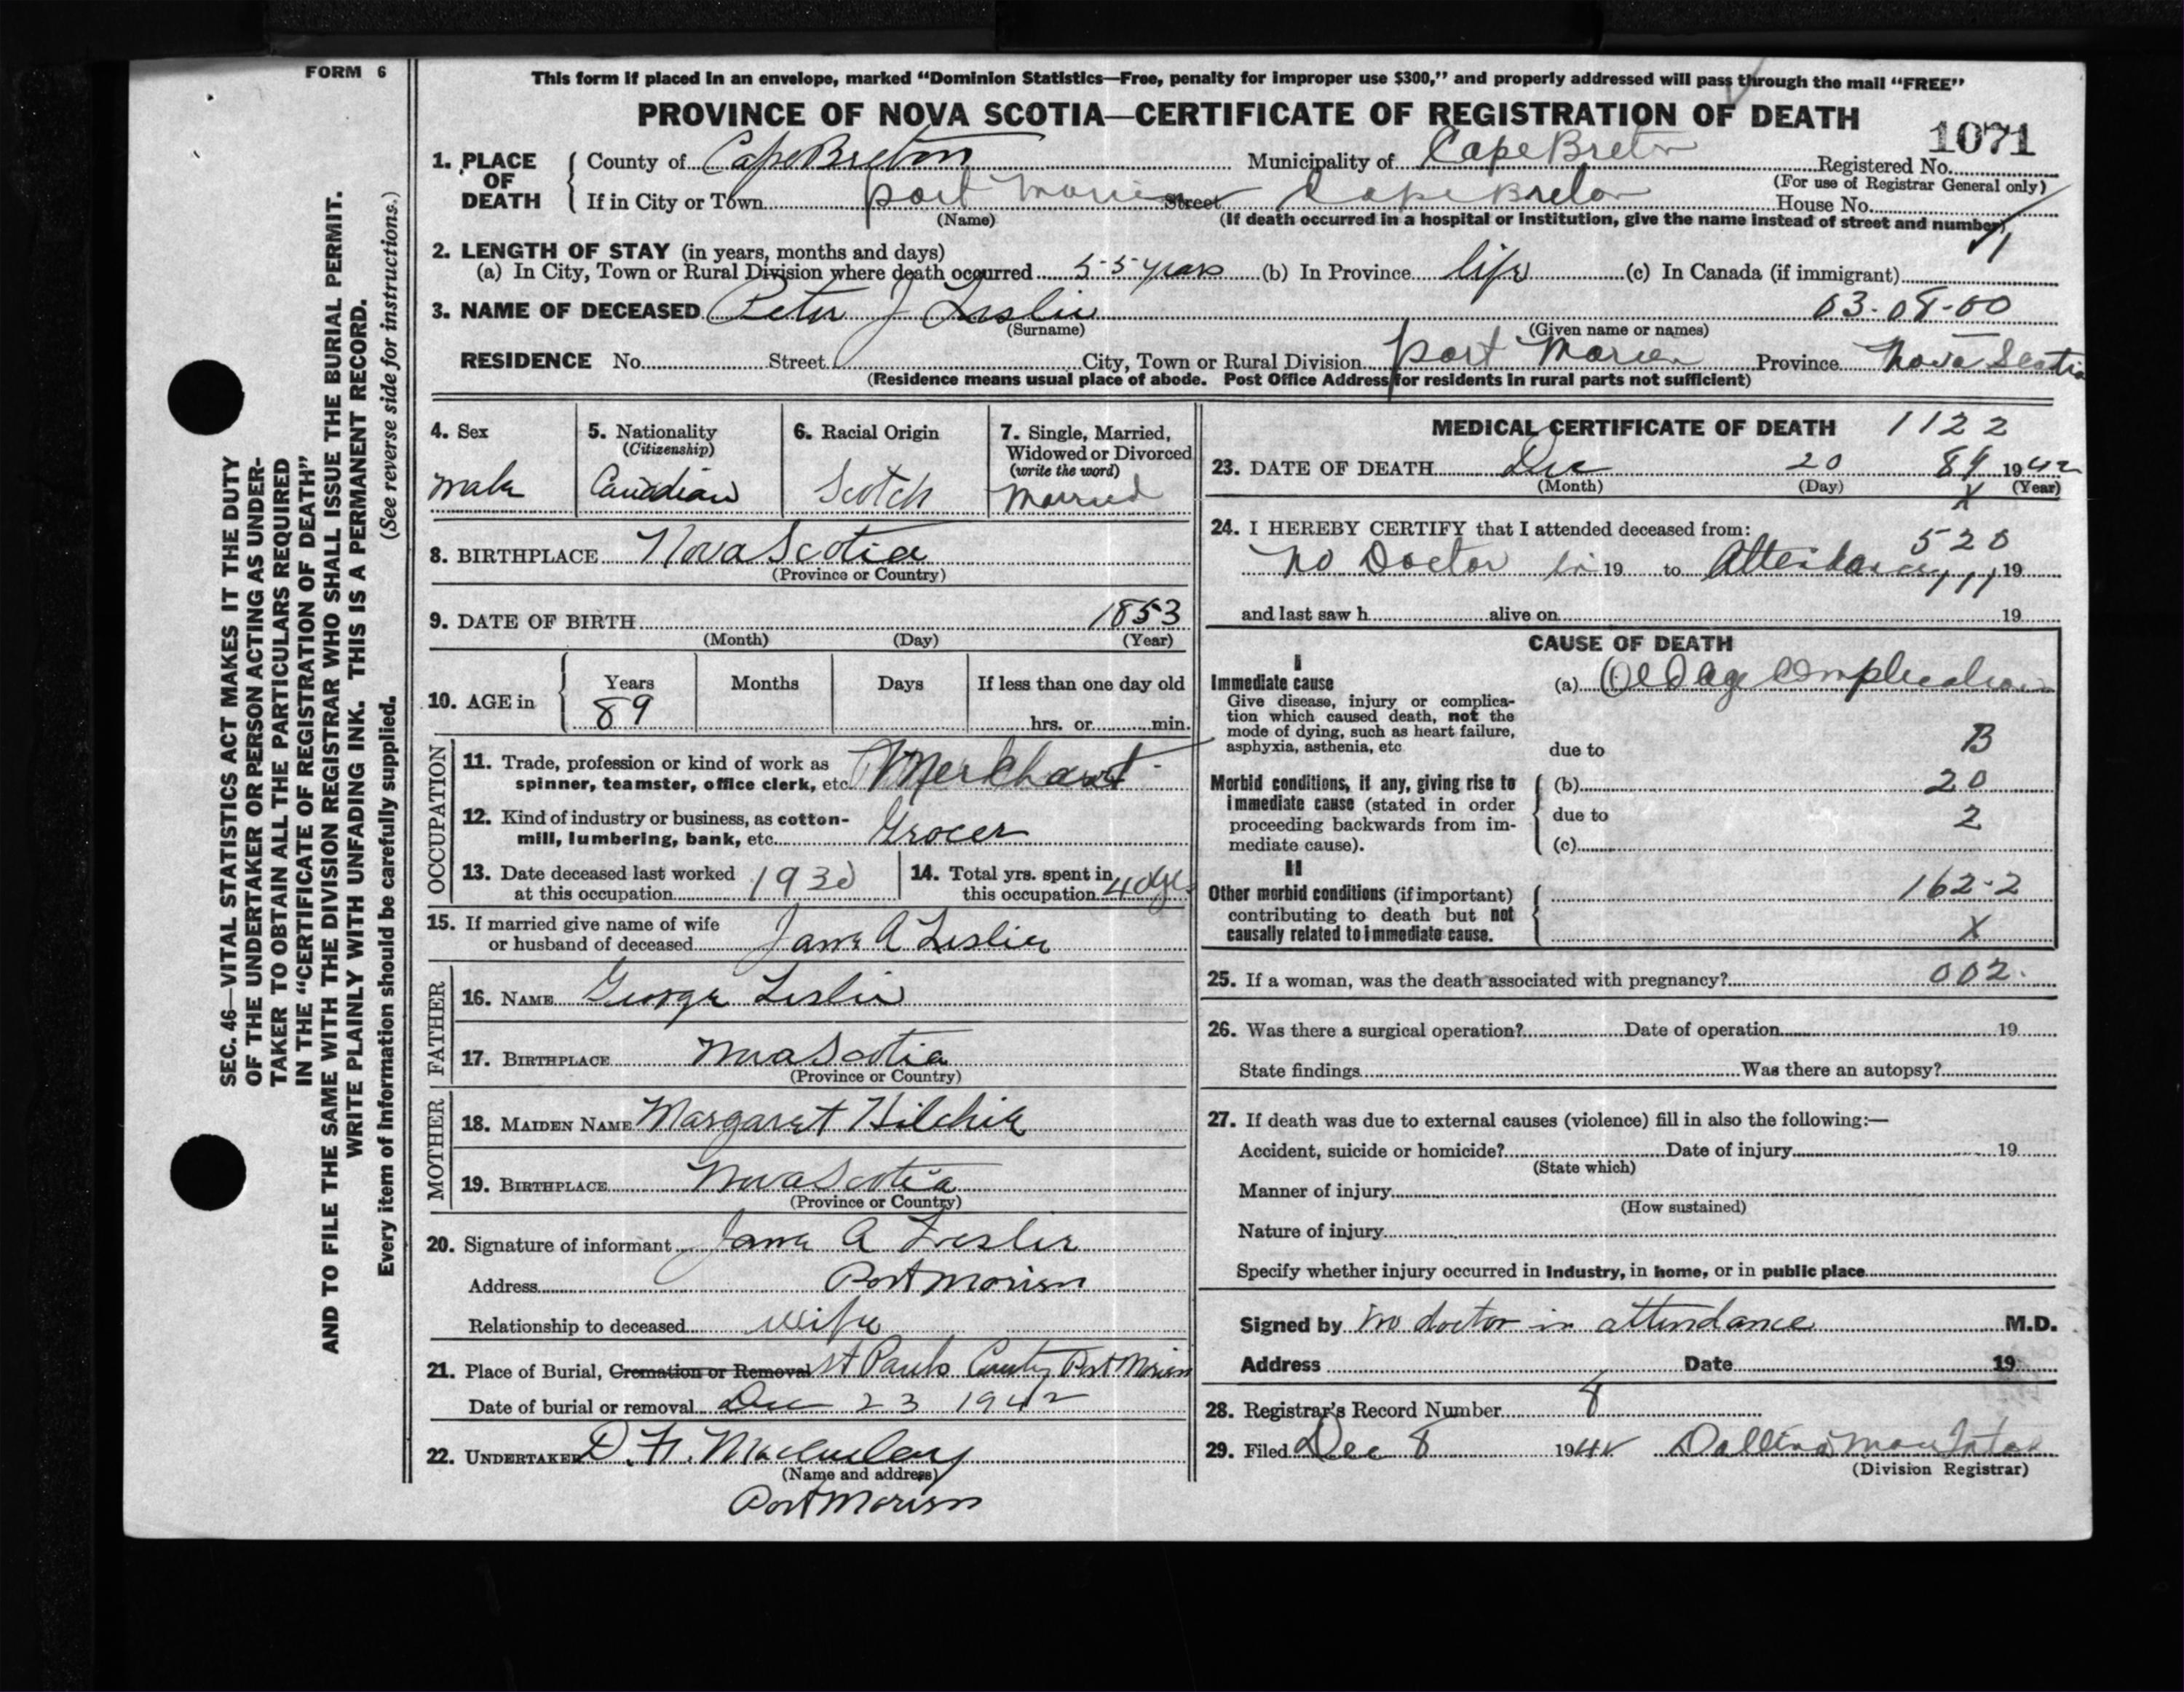 FORM 6
This form if placed in an envelope, marked “Dominion Statistics—Free, penalty for improper use $300,” and properly addressed will pass through the mail “FREE”
PROVINCE OF NOVA SCOTIA—CERTIFICATE OF REGISTRATION OF DEATH
1071
1. PLACE OF DEATH
County of Cape Breton Municipality of Cape Breton Registered No.
(For use of Registrar General only)
If in City or Town port Morien Street Cape Breton House No.
(Name) (If death occurred in a hospital or institution, give the name instead of street and number)
2. LENGTH OF STAY (in years, months and days)
(a) In City, Town or Rural Division where death occurred 55 years (b) In Province life (c) In Canada (if immigrant)
3. NAME OF DECEASED Peter J Leslie 03-08-00
(Surname) (Given name or names)
RESIDENCE No. Street City, Town or Rural Division port Morien Province Nova Scotia
(Residence means usual place of abode. Post Office Address for residents in rural parts not sufficient)
4. Sex
male
5. Nationality
(Citizenship)
Canadian
6. Racial Origin
Scotch
7. Single, Married,
Widowed or Divorced
(write the word)
Married
8. BIRTHPLACE Nova Scotia
(Province or Country)
9. DATE OF BIRTH 1853
(Month) (Day) (Year)
10. AGE in
Years Months Days If less than one day old
89 hrs. or min.
OCCUPATION
11. Trade, profession or kind of work as
spinner, teamster, office clerk, etc. Merchant
12. Kind of industry or business, as cotton-
mill, lumbering, bank, etc. Grocer
13. Date deceased last worked
at this occupation 1930
14. Total yrs. spent in
this occupation 40 yrs
15. If married give name of wife
or husband of deceased Jane A Leslie
FATHER
16. NAME George Leslie
17. BIRTHPLACE Nova Scotia
(Province or Country)
MOTHER
18. MAIDEN NAME Margaret Hilchie
19. BIRTHPLACE Nova Scotia
(Province or Country)
20. Signature of informant Jane A Leslie
Address Port Morien
Relationship to deceased wife
21. Place of Burial, Cremation or Removal St Pauls Port Morien
Date of burial or removal Dec 23 1942
22. UNDERTAKER
(Name and address)
Port Morien
MEDICAL CERTIFICATE OF DEATH 1122
23. DATE OF DEATH Dec 20 89 1942
(Month) (Day) X (Year)
24. I HEREBY CERTIFY that I attended deceased from:
520
No Doctor in 19 to Attendance 19
111
and last saw h alive on 19
CAUSE OF DEATH
I
Immediate cause
Give disease, injury or complica-
tion which caused death, not the
mode of dying, such as heart failure,
asphyxia, asthenia, etc
(a) Old age Complication
due to B
Morbid conditions, if any, giving rise to
immediate cause (stated in order
proceeding backwards from im-
mediate cause).
(b) 20
due to 2
(c)
II
Other morbid conditions (if important)
contributing to death but not
causally related to immediate cause.
162-2
X
25. If a woman, was the death associated with pregnancy? 002.
26. Was there a surgical operation? Date of operation 19
State findings Was there an autopsy?
27. If death was due to external causes (violence) fill in also the following:—
Accident, suicide or homicide? Date of injury 19
(State which)
Manner of injury
(How sustained)
Nature of injury
Specify whether injury occurred in industry, in home, or in public place
Signed by no doctor in attendance M.D.
Address Date 19
28. Registrar's Record Number 8
29. Filed Dec 8 194
(Division Registrar)
SEC. 46—VITAL STATISTICS ACT MAKES IT THE DUTY
OF THE UNDERTAKER OR PERSON ACTING AS UNDER-
TAKER TO OBTAIN ALL THE PARTICULARS REQUIRED
IN THE “CERTIFICATE OF REGISTRATION OF DEATH”
AND TO FILE THE SAME WITH THE DIVISION REGISTRAR WHO SHALL ISSUE THE BURIAL PERMIT.
WRITE PLAINLY WITH UNFADING INK. THIS IS A PERMANENT RECORD.
Every item of information should be carefully supplied. (See reverse side for instructions.)